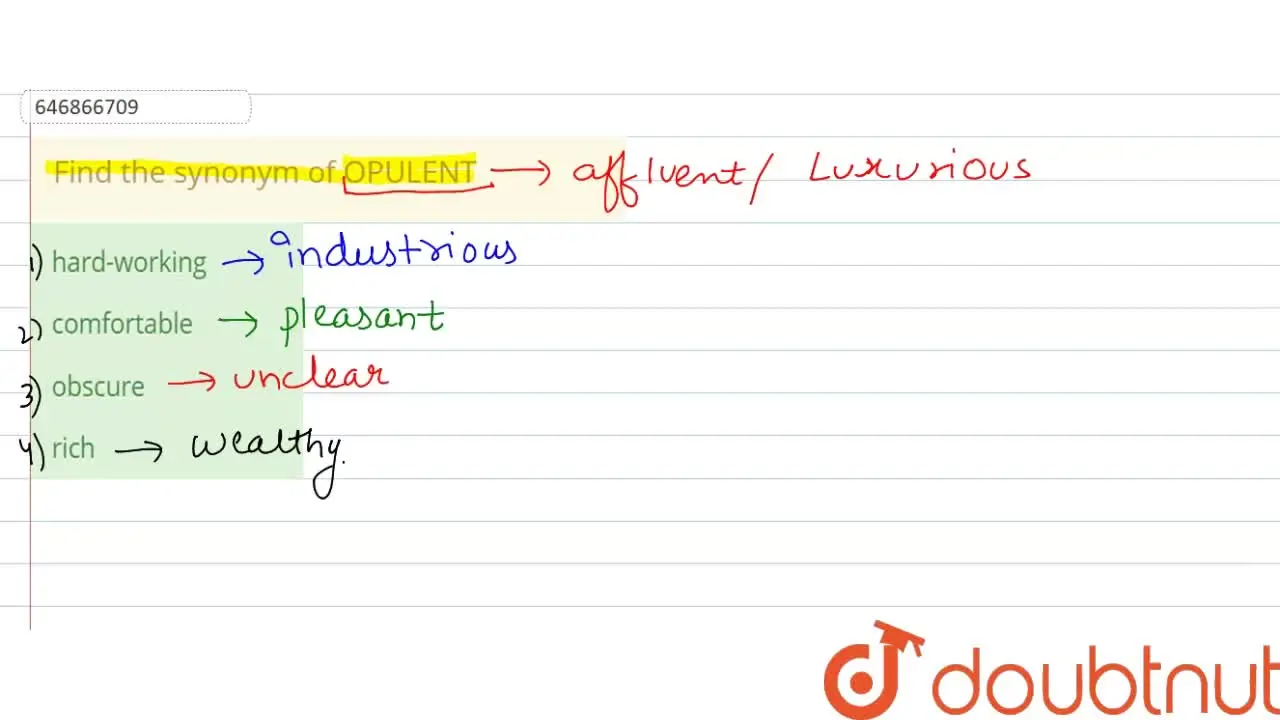 646866709
Find the synonym of OPULENT → affluent/ Luxurious
1) hard-working → industrious
2) comfortable → pleasant
3) obscure → unclear
4) rich → wealthy.
doubtnut